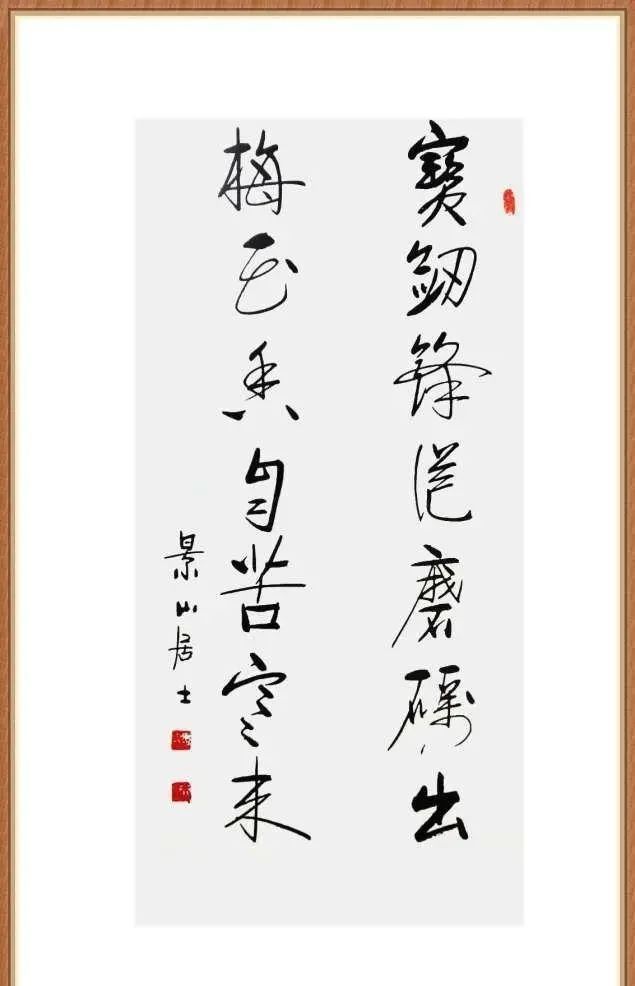 寶劔鋒從磨礪出
梅花香自苦寒来
景山居士